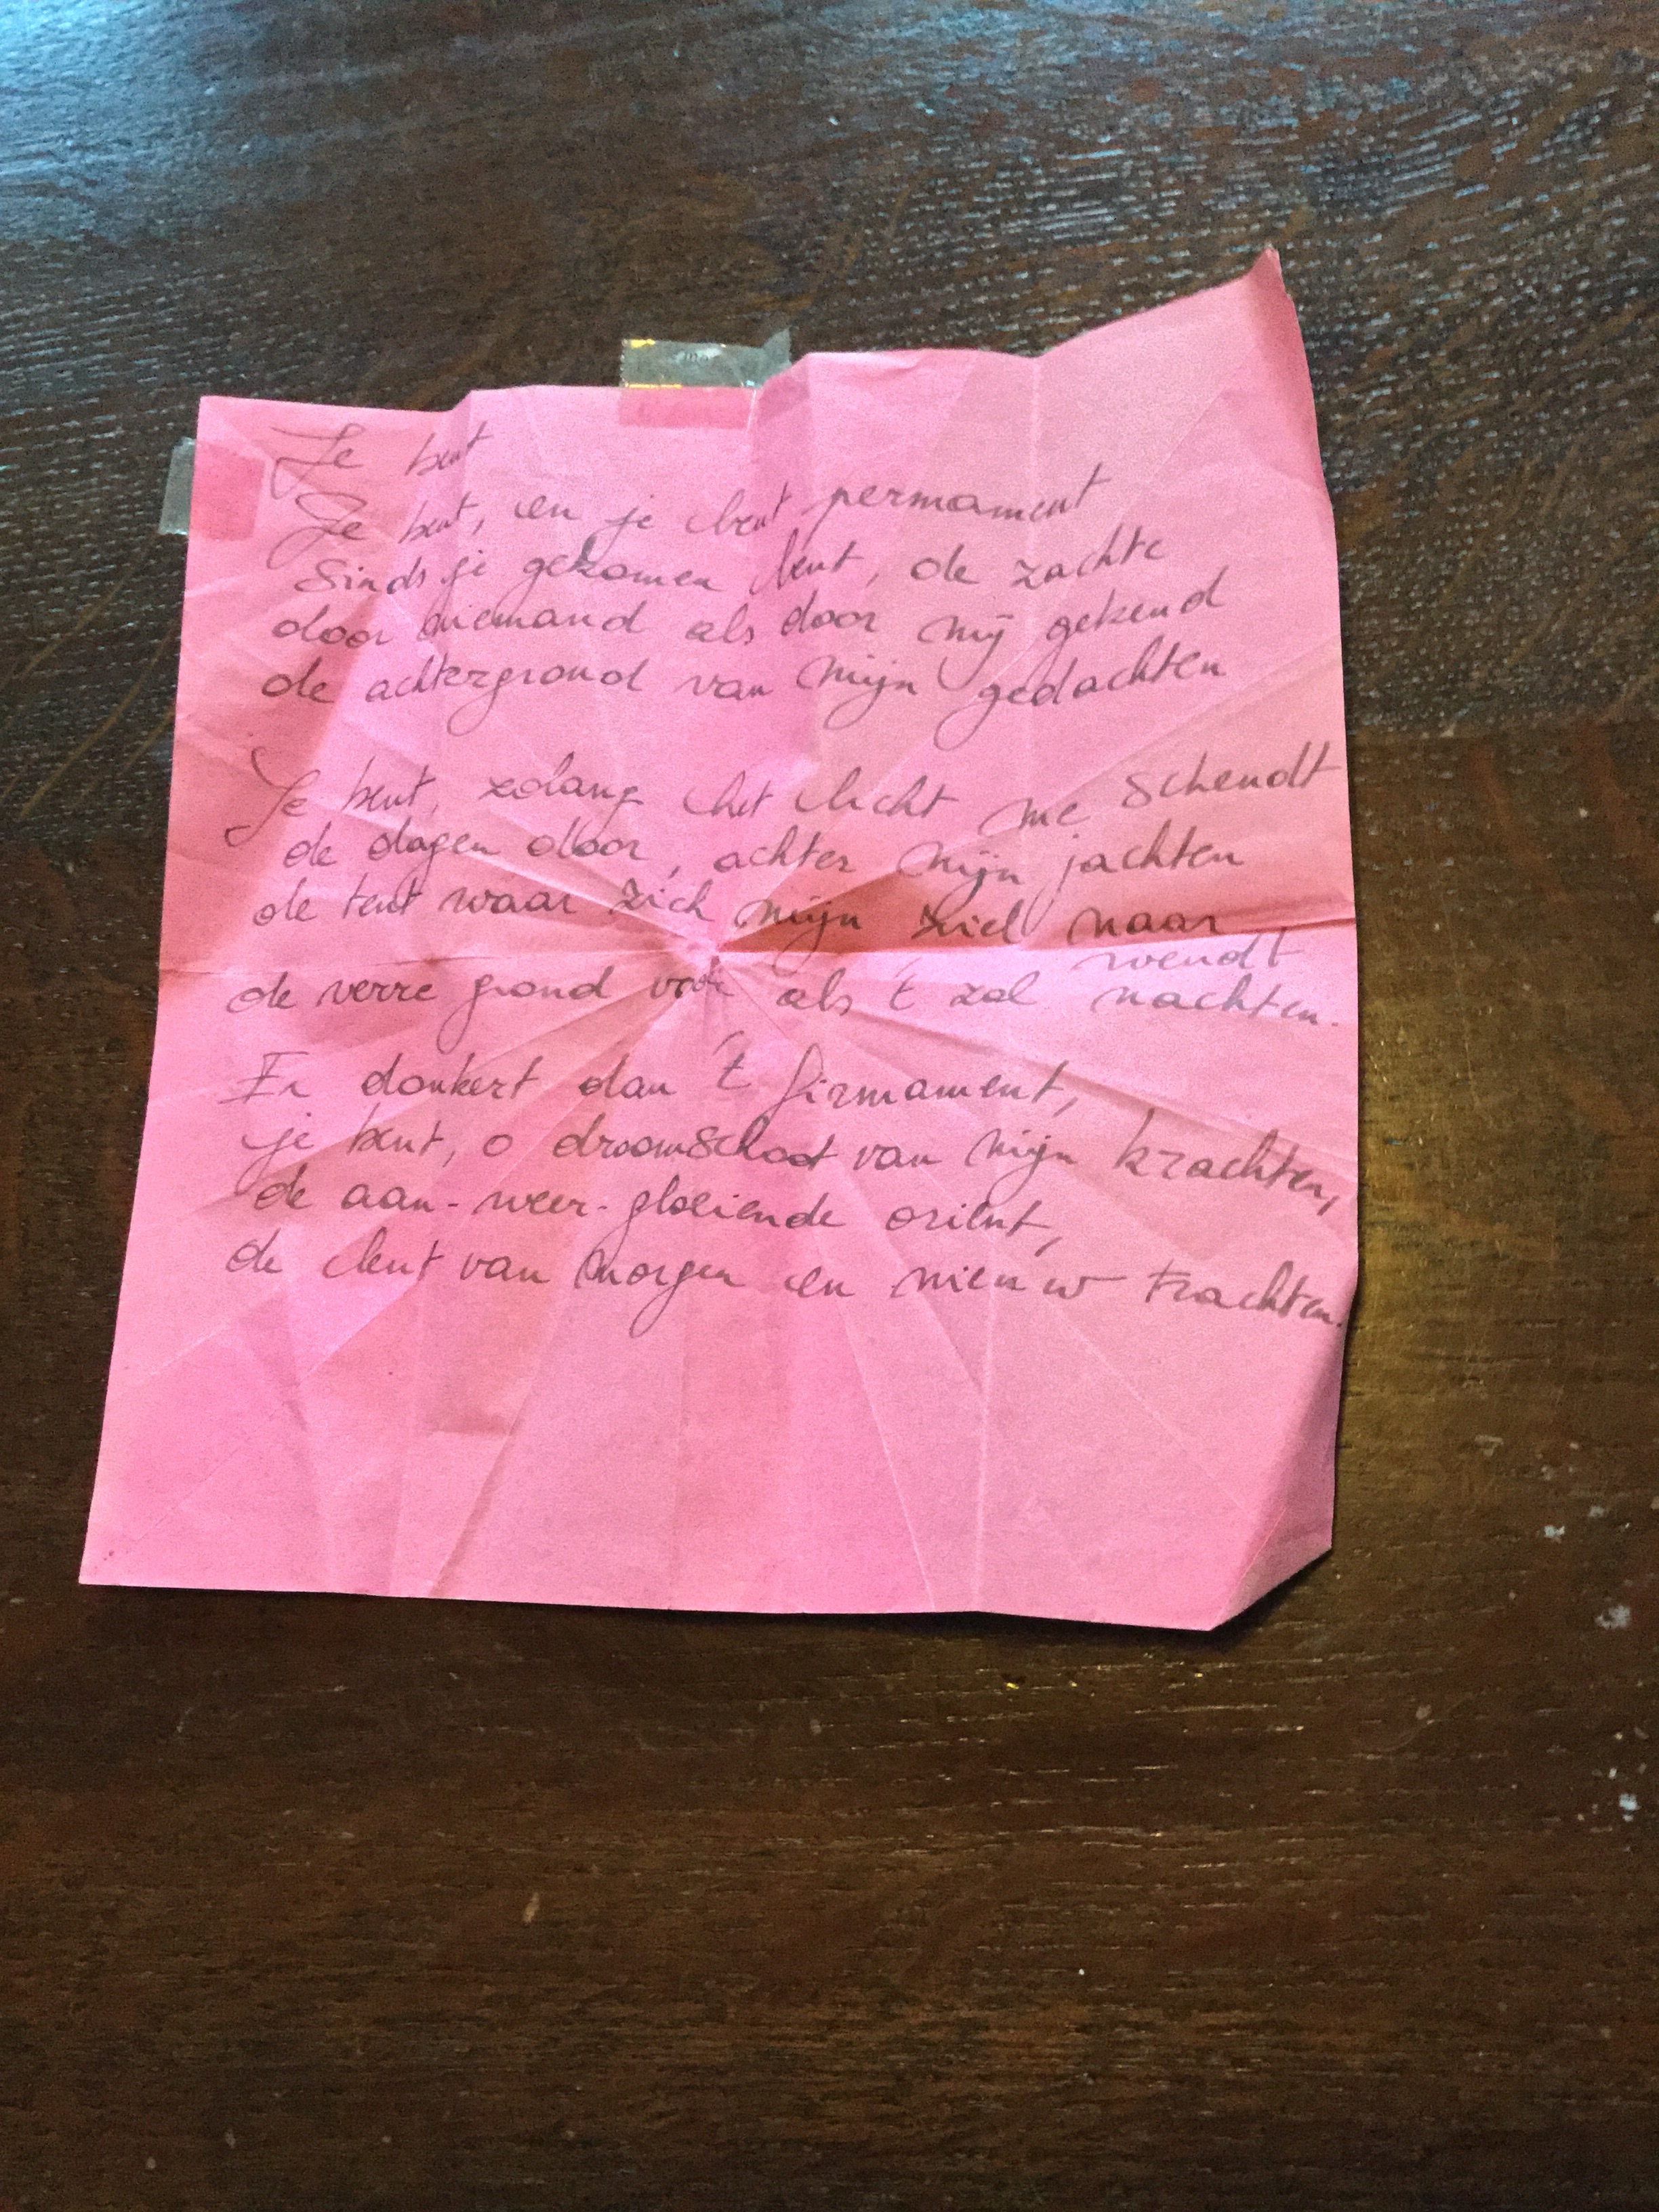 Je bent
Je bent, en je bent permanent
Sinds je gekomen bent, de zachte
door niemand als door mij gekend
de achtergrond van mijn gedachten
Je bent, zolang het licht me schendt
de dagen door, achter mijn jachten
de tent waar zich mijn ziel naar
wendt
de verre grond voor als 't zal nachten.
Er donkert dan 't firmament,
je bent, o droomschoot van mijn krachten,
de aan-weer-gloeiende oriënt,
de lent van morgen en nieuw trachten.